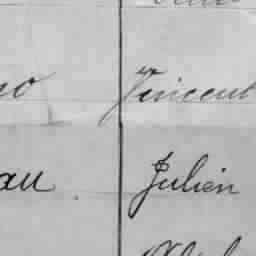 no Vincent
au Julien